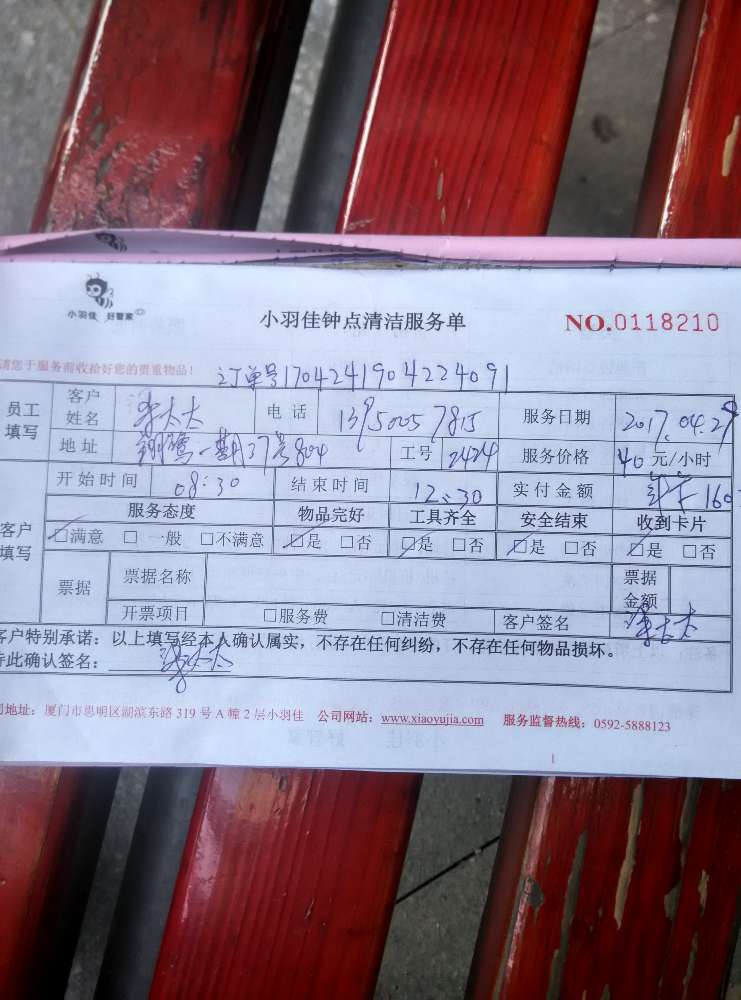 小羽佳 好管家
小羽佳钟点清洁服务单
NO.0118210
请您于服务前收拾好您的贵重物品！
订单号1704241904224091
员工填写 客户姓名 太太 电话 服务日期 2017.04.29
地址 一期37号804 工号 2424 服务价格 40元/小时
客户填写 开始时间 08:30 结束时间 12:30 实付金额 160
服务态度 物品完好 工具齐全 安全结束 收到卡片
□满意 □一般 □不满意 □是 □否 □是 □否 □是 □否 □是 □否
票据 票据名称 票据金额
开票项目 □服务费 □清洁费 客户签名 太太
客户特别承诺：以上填写经本人确认属实，不存在任何纠纷，不存在任何物品损坏。
特此确认签名： 太太
司地址：厦门市思明区湖滨东路319号A幢2层小羽佳 公司网站：www.xiaoyujia.com 服务监督热线：0592-5888123
1